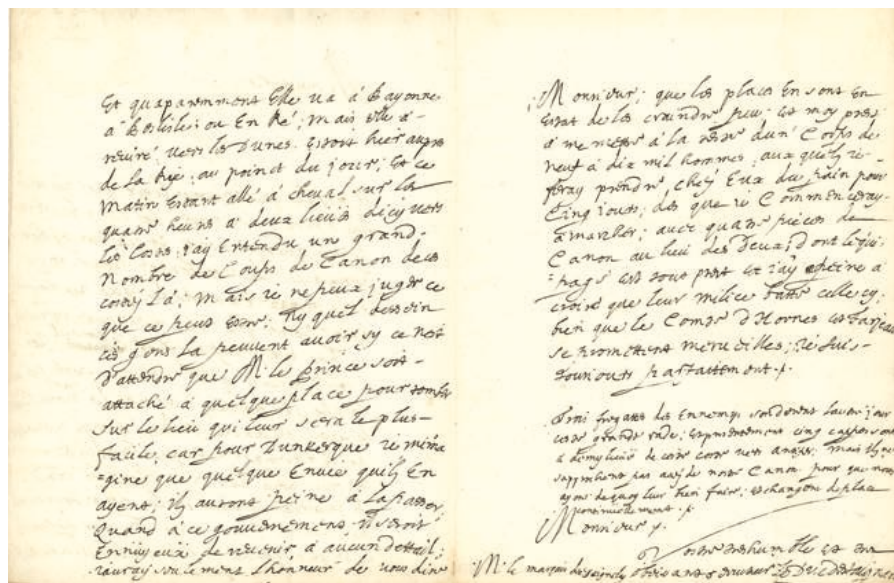 Et quaparemment Elle va à Bayonne
à Beslisle; ou En Ré; mais elle a
reviré vers les Dunes. Estoit hier
de la Rije, au poinct du jour; Et ce
matin estant allé à cheval sur les
quatre heures à deux lieues d'icy vers
les costes; j'ay Entendu un grand
Nombre de Coups de Canon de ces
costez là; mais je ne peux juger ce
que ce peut estre; Ny quel dessein
ces gens la peuvent avoir, sy ce n'est
d'attendre que M. le Prince soit
attaché à quelque place pour tomber
sur le lieu qui leur sera le plus
facile. car pour Dunkerque je m'ima
=gine que quelque Envie quilz En
ayent; ilz auront peine à la passer.
Quand à ce gouvernement il seroit
Ennuyeux de revenir à aucun dettail;
J'auray seulement l'honneur de vous dire
Monsieur; que les places En sont en
Estat de les craindre peu; et moy prest
à me mettre à la teste d'un Corps de
neuf à dix mil hommes, aux quelz je
feray prendre chez Eux du pain pour
Cinq jours; dés que je Commenceray
à marcher; avec quatre pièces de
Canon au lieu des Deux; dont l'equi-
=page est tout prest et j'ay peine à
croire que leur milice batte celle cy;
bien que le Comte d'Hornes et
se promettent merveilles; Je suis
tousjours parfaitement.
Trois fregattes des Ennemis
grande rade; et presentement cinq
a demy lieue de coste vers mais ilz ne
pas assez de nostre Canon pour que nous
ayons de quoy leur bien faire; et changent de place
continuellement.
Monsieur
Vostre treshumble et tres
M. le marquis de obeissant serviteur le Duc